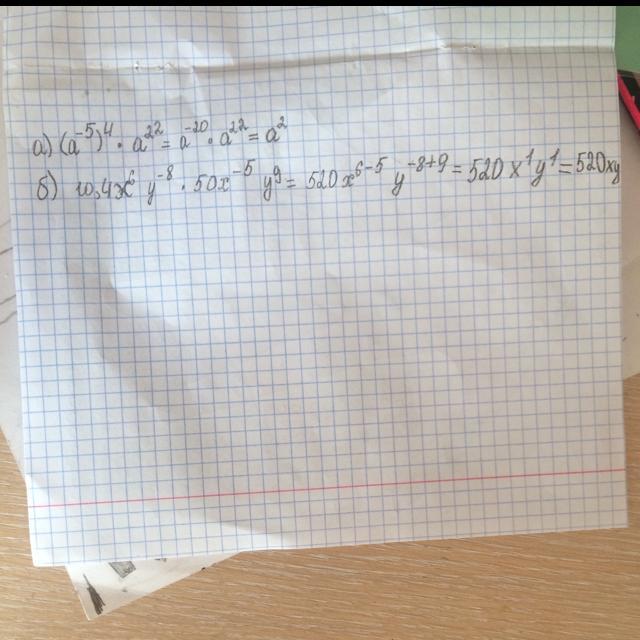 а) (a⁻⁵)⁴ · a²² = a⁻²⁰ · a²² = a²
б) 10,4x⁶ y⁻⁸ · 50x⁻⁵ y⁹ = 520 x⁶⁻⁵ y⁻⁸⁺⁹ = 520 x¹y¹ = 520xy